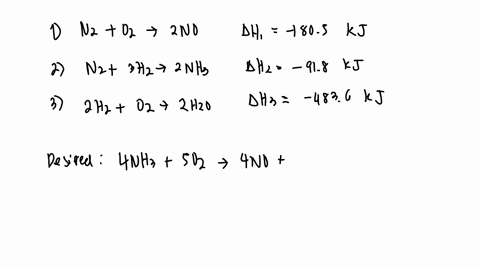 1) N2 + O2 → 2NO ΔH1 = -180.5 kJ
2) N2 + 3H2 → 2NH3 ΔH2 = -91.8 kJ
3) 2H2 + O2 → 2H2O ΔH3 = -483.6 kJ
Desired: 4NH3 + 5O2 → 4NO +